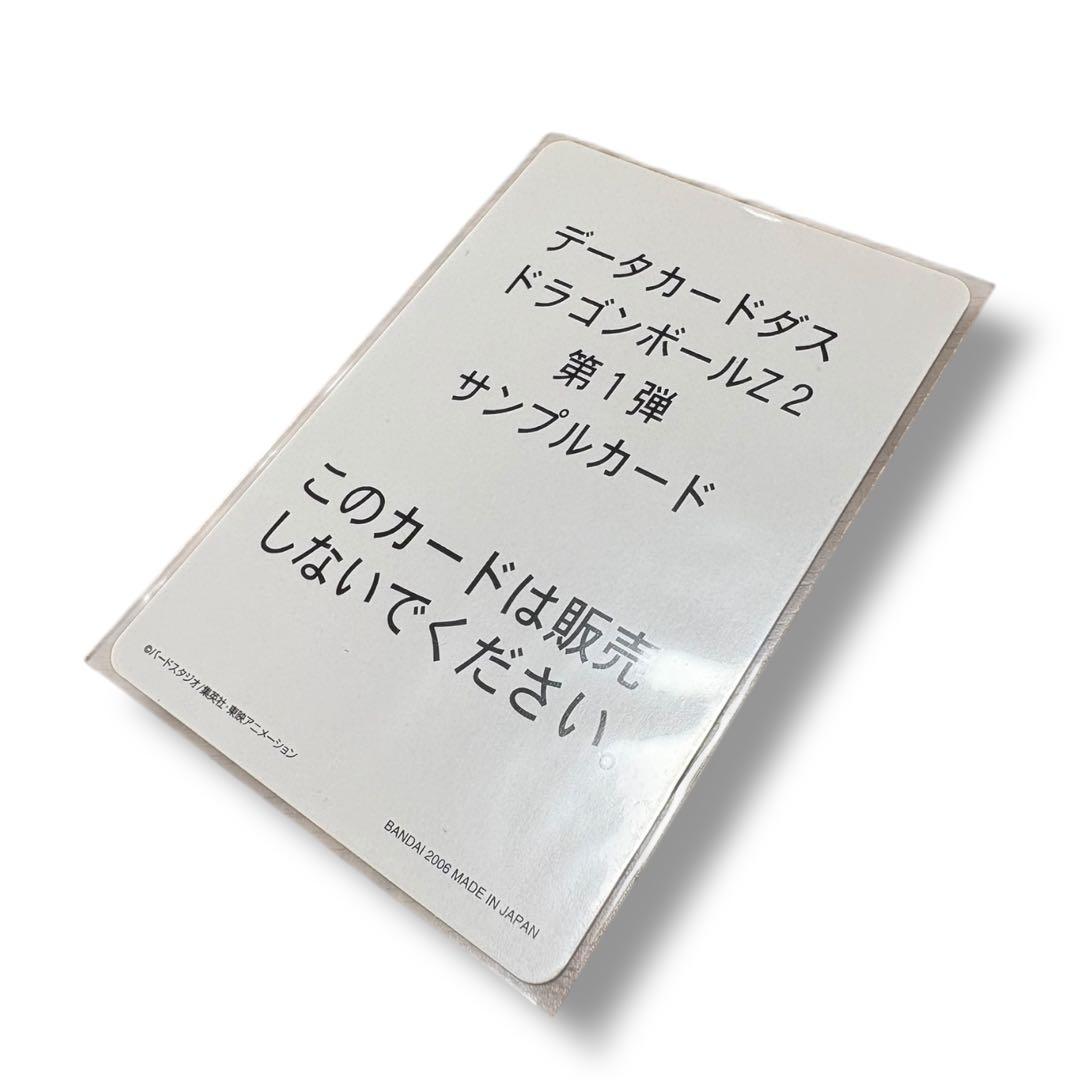 データカードダス
ドラゴンボールZ2
第1弾
サンプルカード
このカードは販売
しないでください。
©バードスタジオ/集英社・東映アニメーション
BANDAI 2006 MADE IN JAPAN